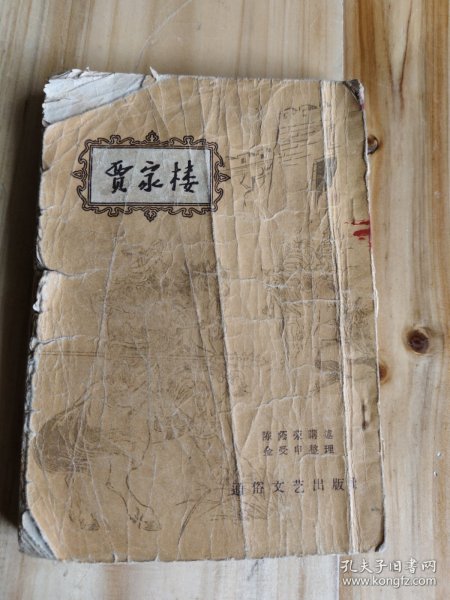 贾家楼
陈荫荣講述
金受申整理
通俗文艺出版社
孔夫子旧书网
www.kongfz.com